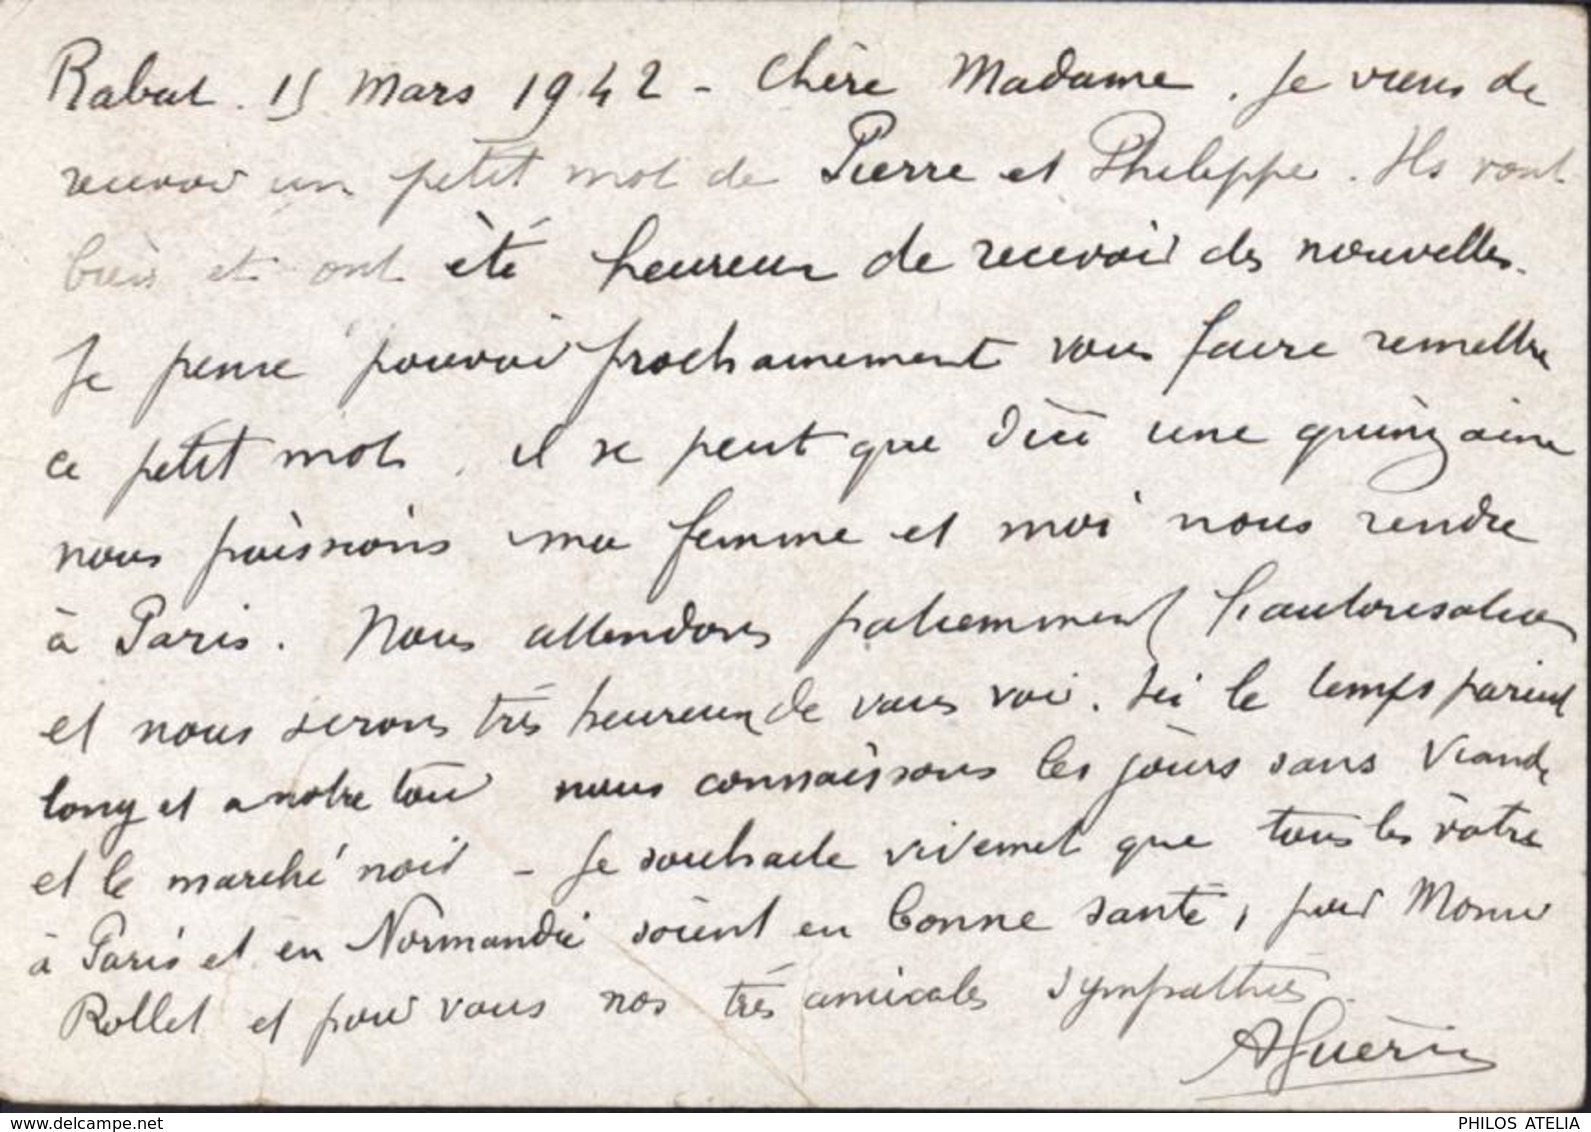 Rabat. 15 Mars 1942 - Chère Madame. Je viens de
recevoir un petit mot de Pierre et Philippe. Ils vont
bien et ont été heureux de recevoir des nouvelles.
Je pense pouvoir prochainement vous faire remettre
ce petit mot. il se peut que d'ici une quinzaine
nous puissions ma femme et moi nous rendre
à Paris. Nous attendons patiemment l'autorisation
et nous serons très heureux de vous voir. Ici le temps parait
long et a notre tour nous connaissons les jours sans viande
et le marché noir - Je souhaite vivemet que tous les vôtres
à Paris et en Normandie soient en bonne santé, pour Monsieur
Rollet et pour vous nos très amicales sympathies.
A Guérin
delcampe.net
PHILOS ATELIA